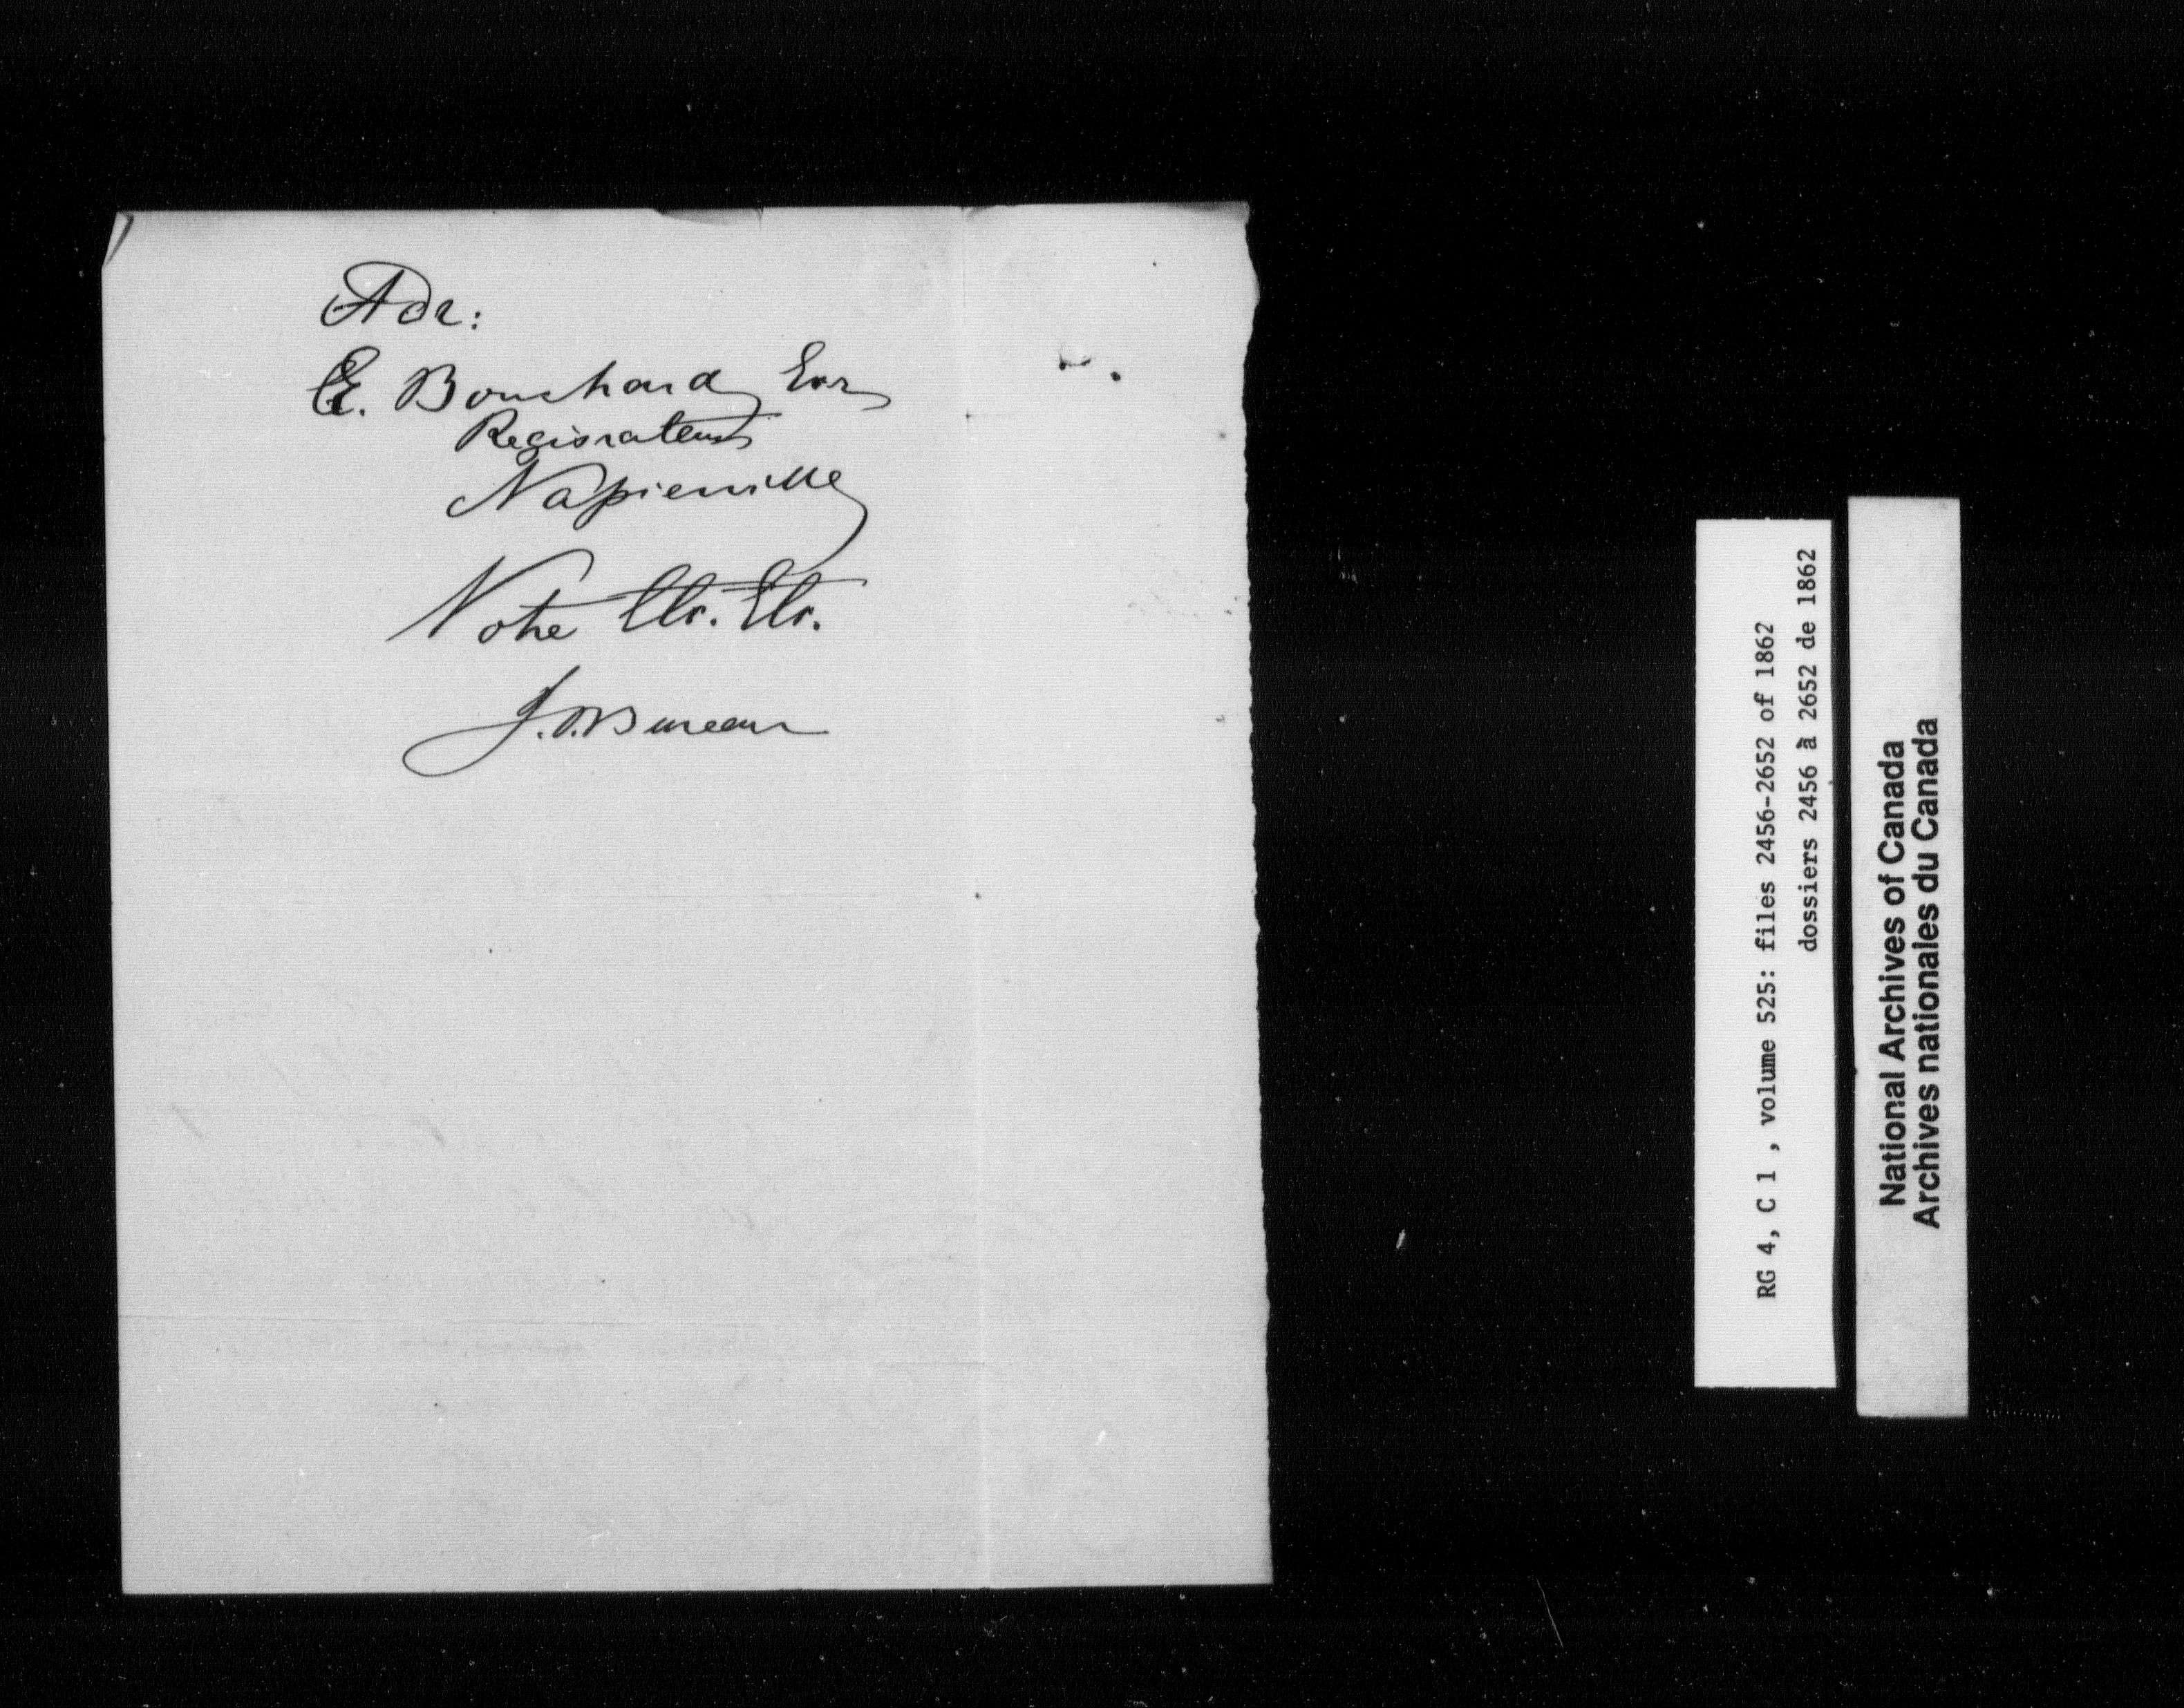 Adr:
E. Bouchard Ecr
Registrateur
Napierville
Votre Etc. Etc.
J. O. Bureau
RG 4, C 1 , volume 525: files 2456-2652 of 1862
dossiers 2456 à 2652 de 1862
National Archives of Canada
Archives nationales du Canada